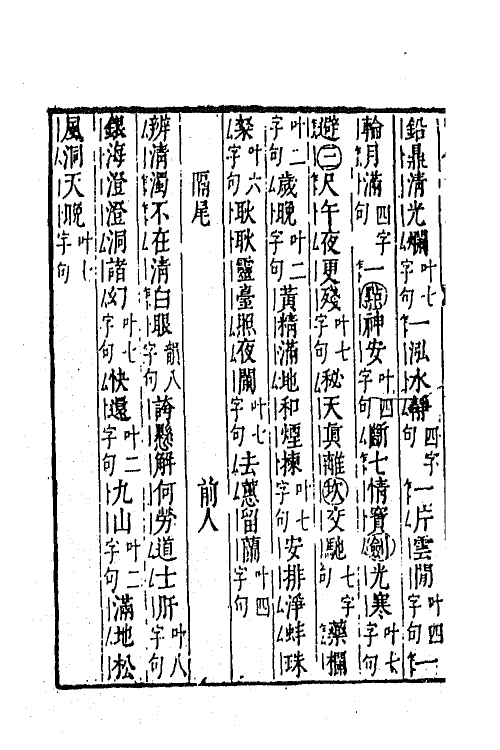 鉛鼎清光爛叶七字句一泓水靜四字句一片雲閒叶四字句一
輪月滿四字句一點神安叶四字句斷七情寶劍光寒叶七字句
避三尺午夜更殘叶七字句秘天眞離坎交馳七字句藥欄
叶二字句歲晚叶二字句黃精滿地和煙揀叶七字句安排淨蚌珠
粲叶六字句耿耿靈臺照夜闌叶七字句去蕙留蘭叶四字句
隔尾 前人
辨清濁不在清白眼韻八字句誇懸解何勞道士肝叶八字句
銀海澄澄洞諸幻叶七字句快還叶二字句九山叶二字句滿地松
風洞天晚叶七字句